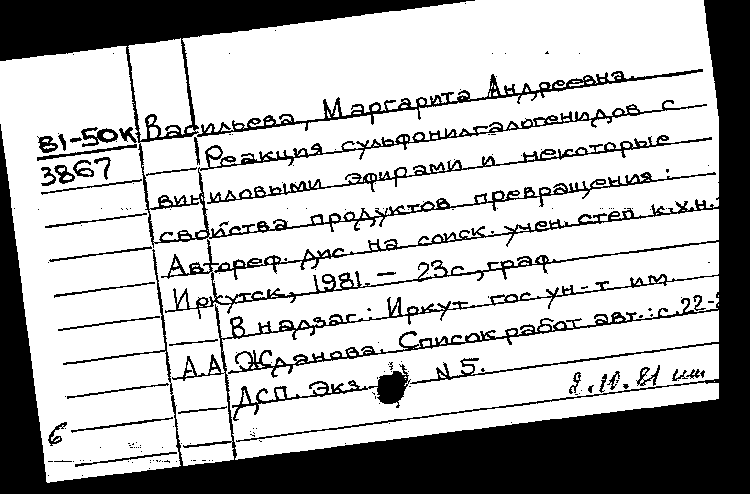 81-50К
3867
Васильева, Маргарита Андреевна.
Реакция сульфонилгалогенидов с
виниловыми эфирами и некоторые
свойства продуктов превращения:
Автореф. дис. на соиск. учен. степ к.х.н.
Иркутск, 1981. — 23с., граф.
В надзаг.: Иркут. гос. ун-т им.
А.А Жданова. Список работ авт.: с. 22-
ДСП. Экз. N 5.
2.10.81
6